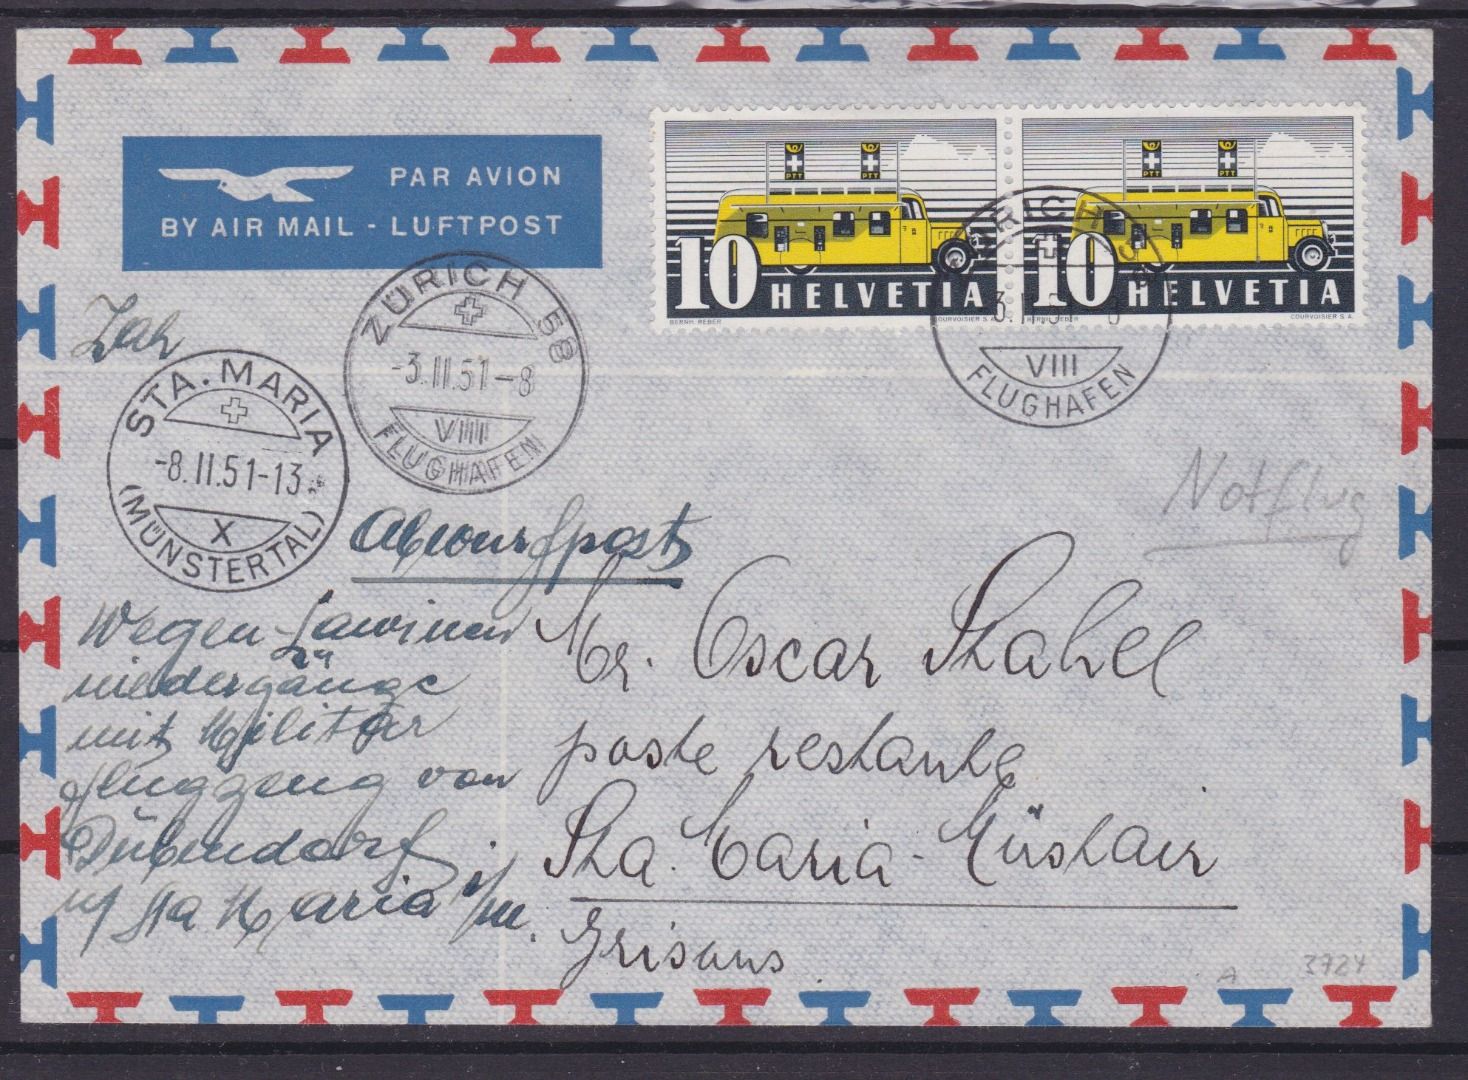 PAR AVION
BY AIR MAIL - LUFTPOST
PTT PTT
10 HELVETIA
BERNH. REBER COURVOISIER S.A.
PTT PTT
10 HELVETIA
BERNH. REBER COURVOISIER S.A.
ZÜRICH 58
-3.II.51-8
VIII
FLUGHAFEN
ZÜRICH 58
3.II.51-8
VIII
FLUGHAFEN
STA. MARIA
-8.II.51-13
X
(MÜNSTERTAL)
Notflug
Wegen Lawinen
niedergänge
mit Militär
flugzeug von
Dübendorf
Sta Maria i/M.
Mr. Oscar Stahel
poste restante
Sta. Maria-Müstair
Grisons
A 3724